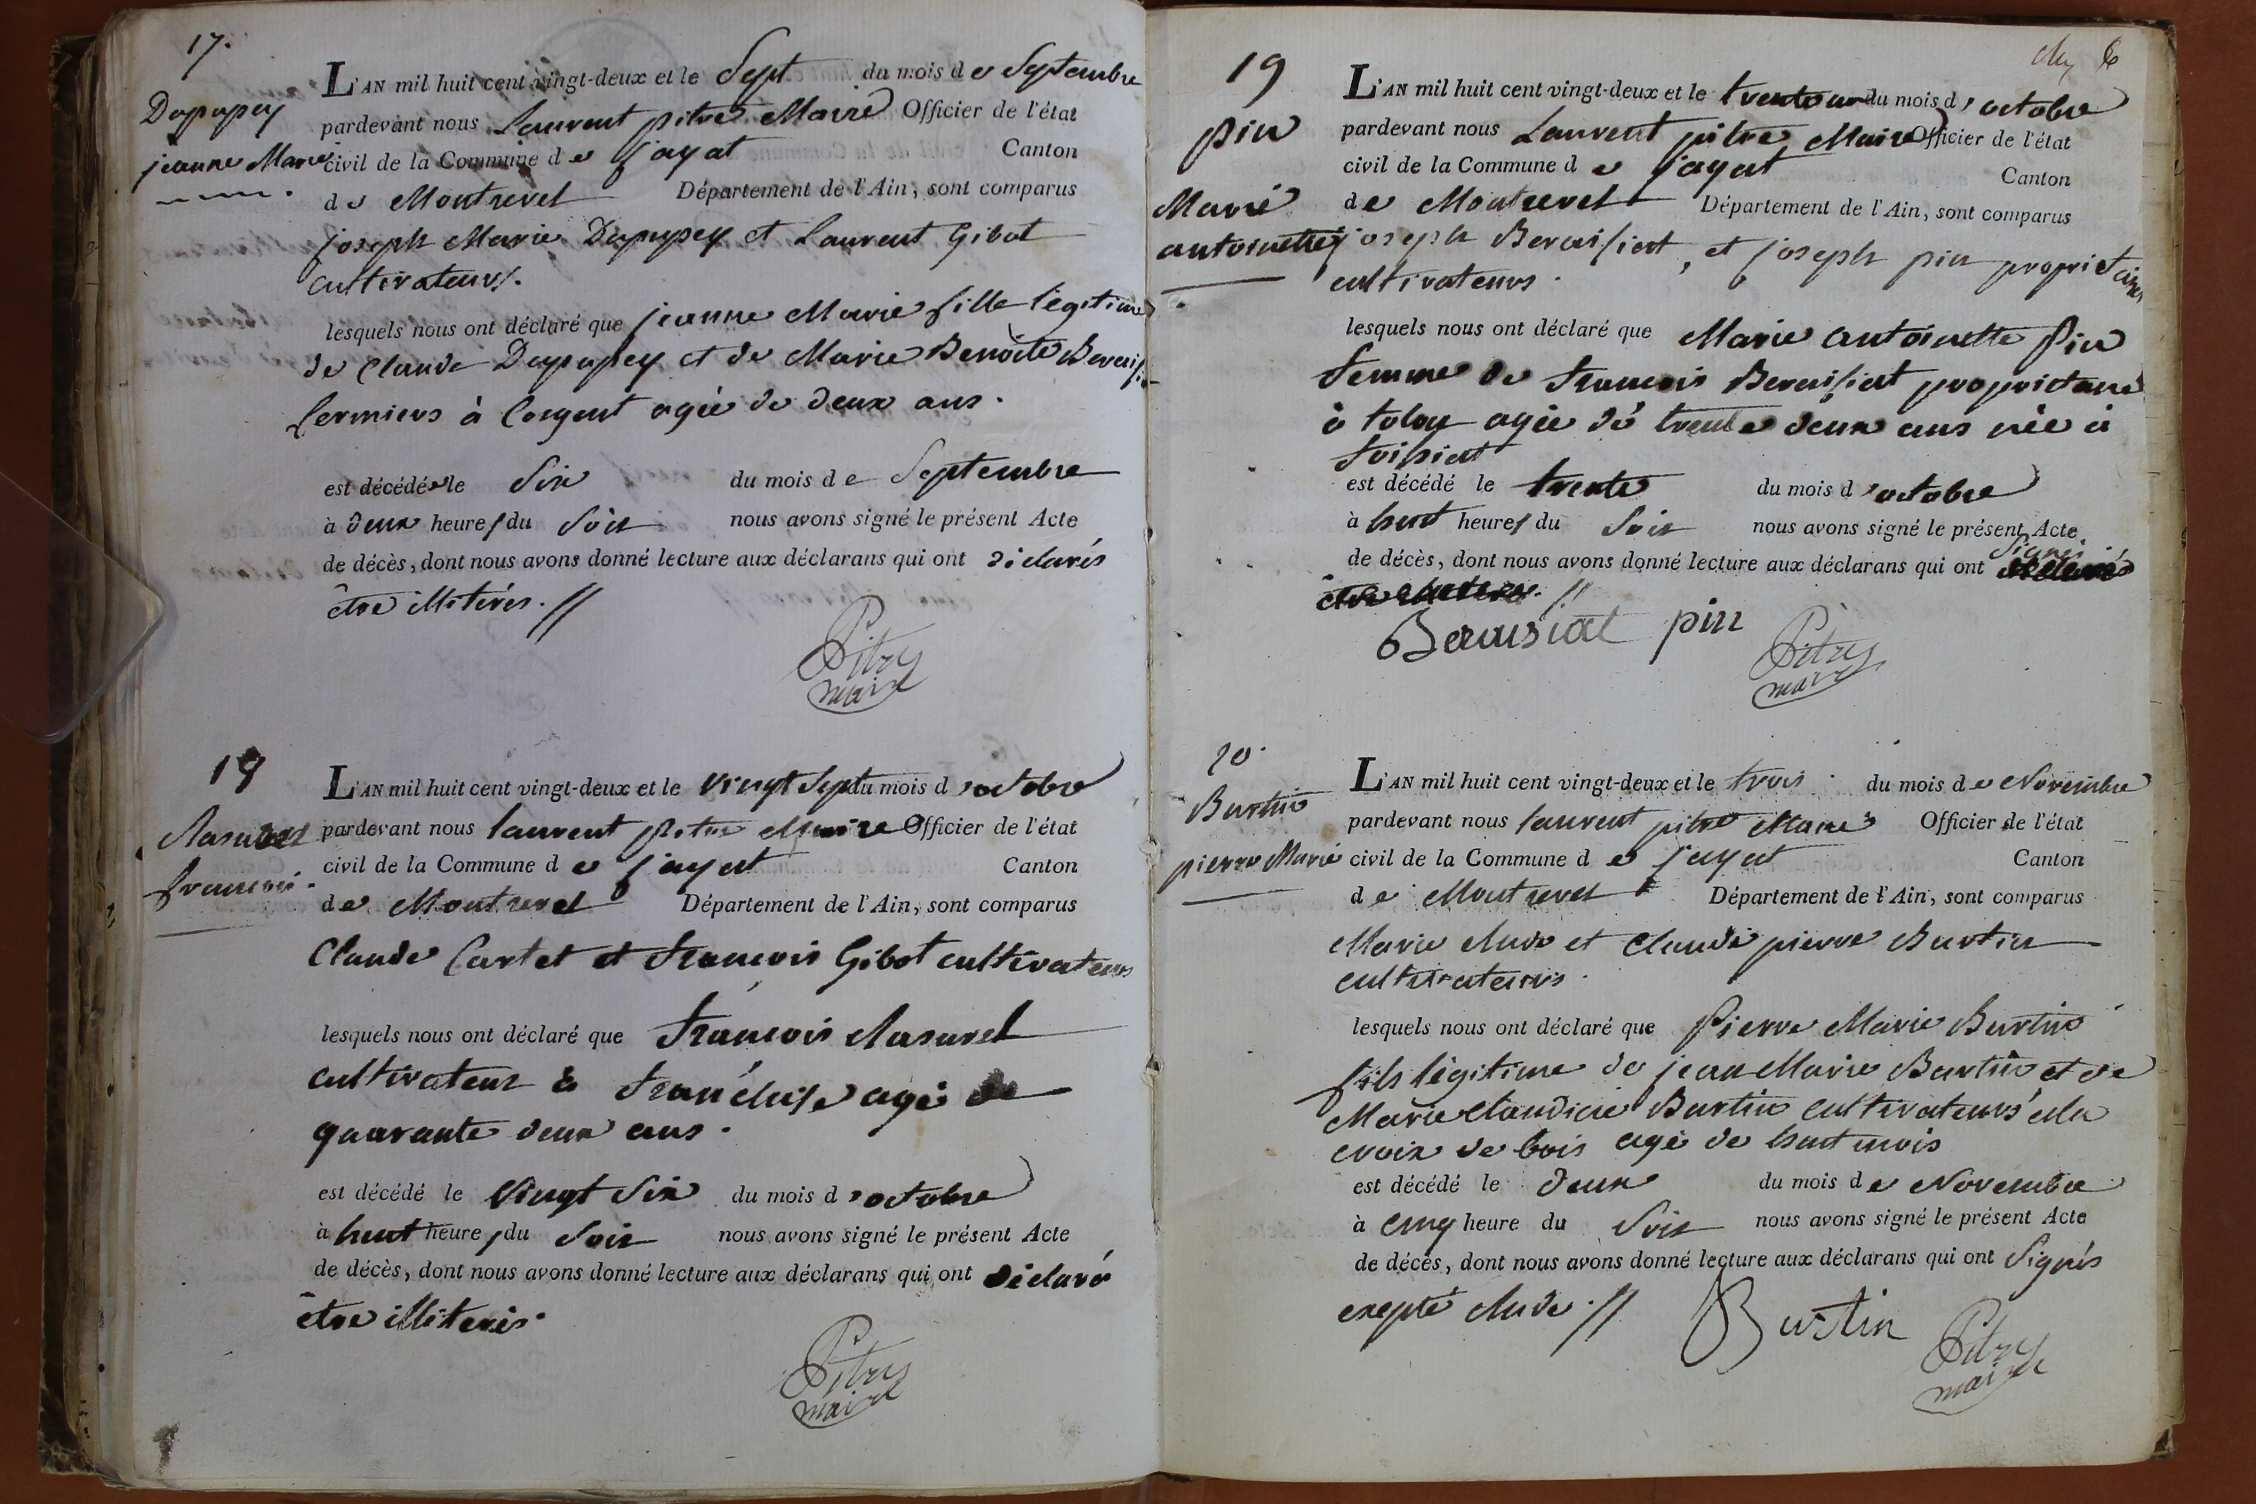 17.
Dupupey
jeanne Marie
L'AN mil huit cent vingt-deux et le Sept du mois de Septembre
pardevant nous Laurent pitre Maire Officier de l'état
civil de la Commune de jayat Canton
de Montrevel Département de l'Ain, sont comparus
joseph Marie Dupupey et Laurent Gibot
cultivateurs.
lesquels nous ont déclaré que jeanne Marie fille légitime
de Claude Dupupey et de Marie Benoite
fermiers à agée de deux ans.
est décédée le Six du mois de Septembre
à deux heures du Soir nous avons signé le présent Acte
de décès, dont nous avons donné lecture aux déclarans qui ont déclarés
être illiterés. //
Pitre
maire
18
françois
L'AN mil huit cent vingt-deux et le vingt Sept du mois d'octobre
pardevant nous laurent pitre Maire Officier de l'état
civil de la Commune de jayat Canton
de Montrevel Département de l'Ain, sont comparus
Claude Cartet et françois Gibot cultivateurs
lesquels nous ont déclaré que françois
cultivateur à agé de
quarante deux ans.
est décédé le vingt Six du mois d'octobre
à huit heures du Soir nous avons signé le présent Acte
de décès, dont nous avons donné lecture aux déclarans qui ont déclaré
être illiterés.
Pitre
maire
19
pin
Marie
antoinette
L'AN mil huit cent vingt-deux et le trente un du mois d'octobre
pardevant nous Laurent pitre Maire Officier de l'état
civil de la Commune de jayat Canton
de Montrevel Département de l'Ain, sont comparus
joseph Berousiat, et joseph pin proprietaires
cultivateurs.
lesquels nous ont déclaré que Marie antoinette Pin
femme de françois proprietaire
à agée de trente deux ans née à
foissiat
est décédé le trente du mois d'octobre
à huit heures du Soir nous avons signé le présent Acte
de décès, dont nous avons donné lecture aux déclarans qui ont signés
être //
Berousiat pin
Pitre
maire
20.
Burtin
pierre Marie
L'AN mil huit cent vingt-deux et le trois du mois de Novembre
pardevant nous laurent pitre Maire Officier de l'état
civil de la Commune de jayat Canton
de Montrevel Département de l'Ain, sont comparus
Marie et Claude pierre Burtin
cultivateurs.
lesquels nous ont déclaré que Pierre Marie Burtin
fils légitime de jean Marie Burtin et de
Marie Claudine Burtin cultivateurs
croix de bois agé de huit mois
est décédé le deux du mois de Novembre
à cinq heure du Soir nous avons signé le présent Acte
de décès, dont nous avons donné lecture aux déclarans qui ont Signés
exepté //
Burtin
Pitre
maire